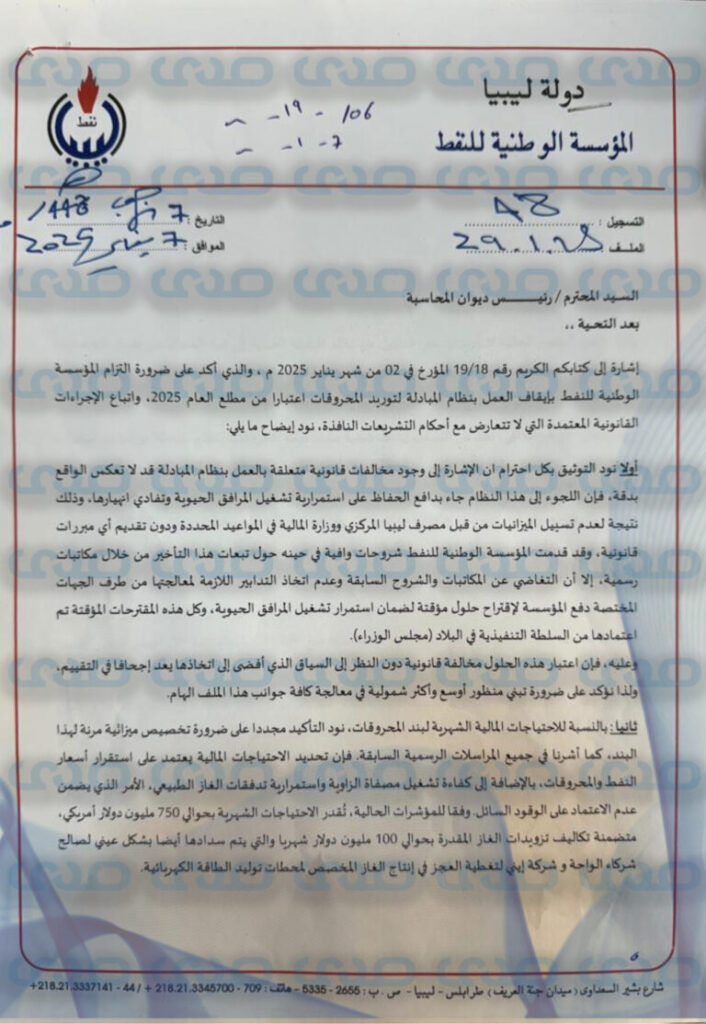 دولة ليبيا
المؤسسة الوطنية للنفط
نفط
106 - 19 -
7 - 1 -
التسجيل : 48
الملف 29.1.28
التاريخ : 7 رجب 1446
الموافق : 7 يناير 2025
السيد المحترم / رئيـــس ديوان المحاسبة
بعد التحية ،،
إشارة إلى كتابكم الكريم رقم 19/18 المؤرخ في 02 من شهر يناير 2025 م ، والذي أكد على ضرورة التزام المؤسسة
الوطنية للنفط بإيقاف العمل بنظام المبادلة لتوريد المحروقات اعتبارا من مطلع العام 2025، واتباع الإجراءات
القانونية المعتمدة التي لا تتعارض مع أحكام التشريعات النافذة، نود إيضاح ما يلي:
أولا نود التوثيق بكل احترام ان الإشارة إلى وجود مخالفات قانونية متعلقة بالعمل بنظام المبادلة قد لا تعكس الواقع
بدقة، فإن اللجوء إلى هذا النظام جاء بدافع الحفاظ على استمرارية تشغيل المرافق الحيوية وتفادي انهيارها، وذلك
نتيجة لعدم تسييل الميزانيات من قبل مصرف ليبيا المركزي ووزارة المالية في المواعيد المحددة ودون تقديم أي مبررات
قانونية، وقد قدمت المؤسسة الوطنية للنفط شروحات وافية في حينه حول تبعات هذا التأخير من خلال مكاتبات
رسمية، إلا أن التغاضي عن المكاتبات والشروح السابقة وعدم اتخاذ التدابير اللازمة لمعالجتها من طرف الجهات
المختصة دفع المؤسسة لإقتراح حلول مؤقتة لضمان استمرار تشغيل المرافق الحيوية، وكل هذه المقترحات المؤقتة تم
اعتمادها من السلطة التنفيذية في البلاد (مجلس الوزراء).
وعليه، فإن اعتبار هذه الحلول مخالفة قانونية دون النظر إلى السياق الذي أفضى إلى اتخاذها يعد إجحافا في التقييم،
ولذا نؤكد على ضرورة تبني منظور أوسع وأكثر شمولية في معالجة كافة جوانب هذا الملف الهام.
ثانيا: بالنسبة للاحتياجات المالية الشهرية لبند المحروقات، نود التأكيد مجددا على ضرورة تخصيص ميزانية مرنة لهذا
البند، كما أشرنا في جميع المراسلات الرسمية السابقة. فإن تحديد الاحتياجات المالية يعتمد على استقرار أسعار
النفط والمحروقات، بالإضافة إلى كفاءة تشغيل مصفاة الزاوية واستمرارية تدفقات الغاز الطبيعي، الأمر الذي يضمن
عدم الاعتماد على الوقود السائل. وفقا للمؤشرات الحالية، تُقدر الاحتياجات الشهرية بحوالي 750 مليون دولار أمريكي،
متضمنة تكاليف تزويدات الغاز المقدرة بحوالي 100 مليون دولار شهريا والتي يتم سدادها أيضا بشكل عيني لصالح
شركاء الواحة و شركة إيني لتغطية العجز في إنتاج الغاز المخصص لمحطات توليد الطاقة الكهربائية.
شارع بشير السعداوى ( ميدان جنة العريف ) طرابلس - ليبيا - ص . ب : 2655 - 5335 - هاتف : 709 - 218.21.3345700 + / 44 - 218.21.3337141+
صدى